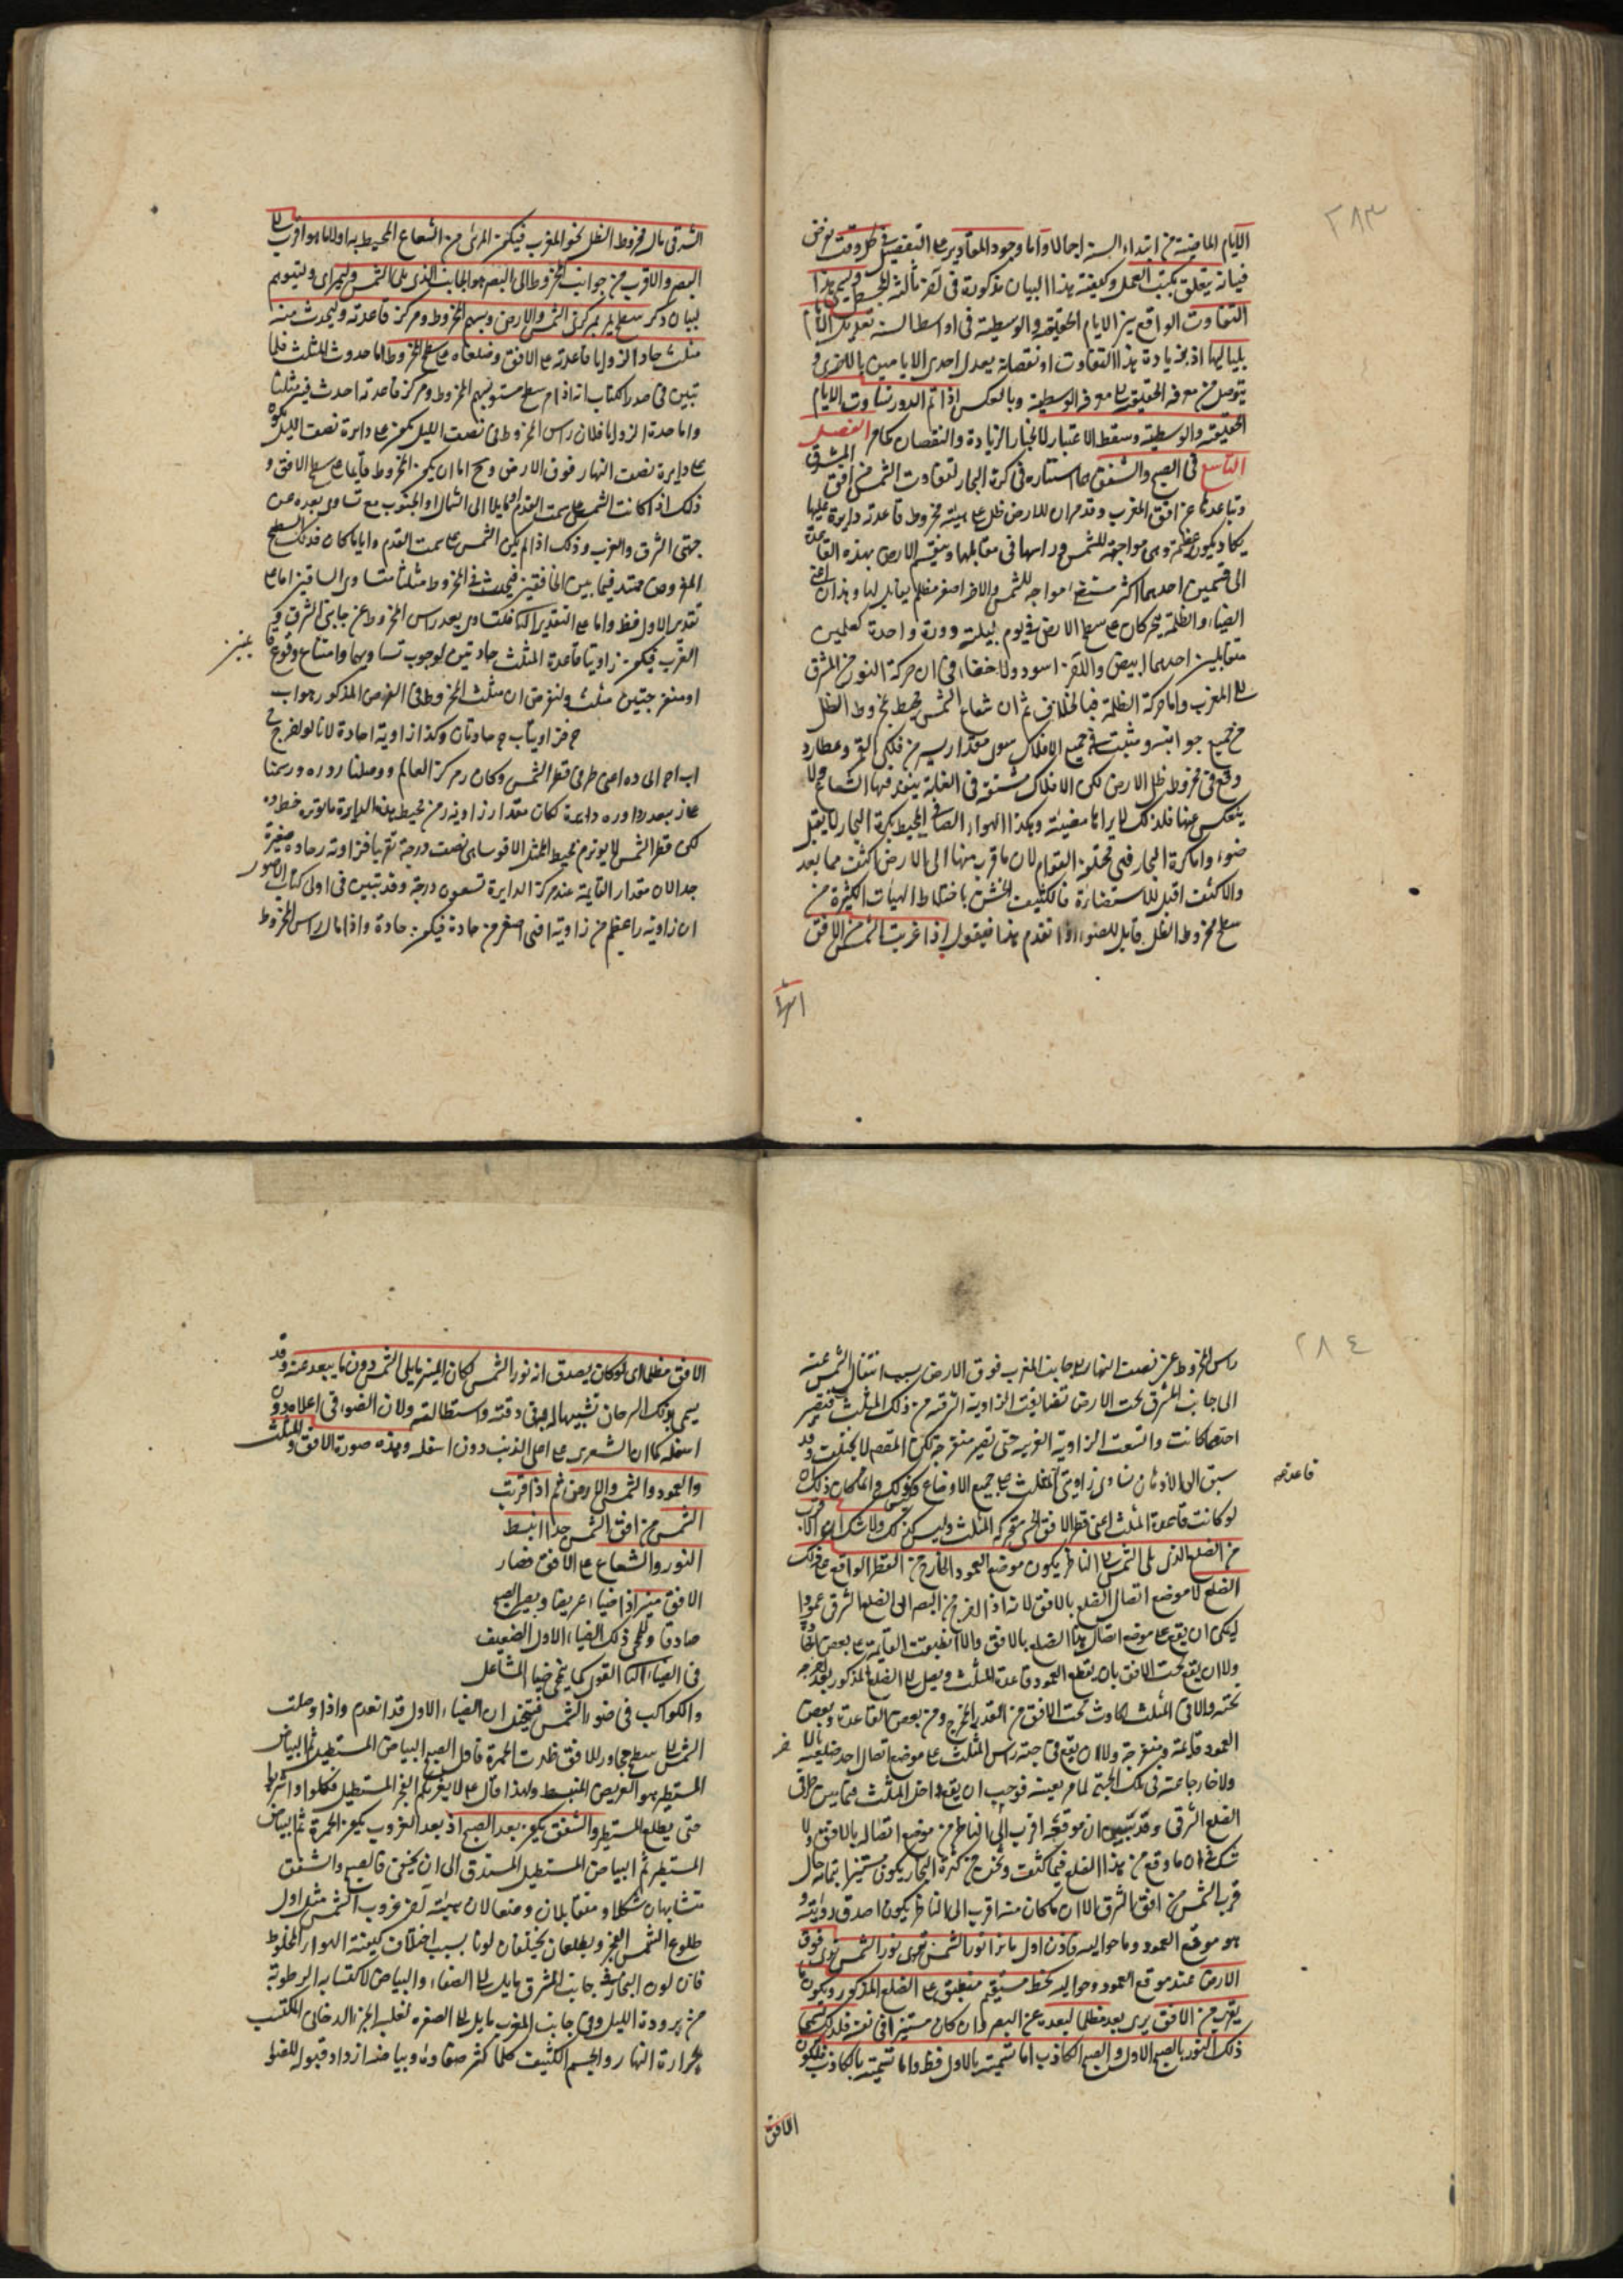 ٢٨٣
الايام الماضية من ابتداء السنة اجمالا واما وجود المقادير على التفصيل في كل وقت يفرض
فبانه يتعلق بكتب العمل وكيفية هذا البيان مذكورة في آخر ثالثة المجسطي ويسمى هذا
التفاوت الواقع بين الايام الحقيقية والوسطية في اواسط السنة تعديل الايام
بلياليها اذ بزيادة هذا التفاوت او نقصانه يعدل احدى الايامين بالاخرى و
يتوصل من معرفة الحقيقية الى معرفة الوسطية وبالعكس اذا تم الدور تساوت الايام
الحقيقية والوسطية وسقط الاعتبار لانجبار الزيادة والنقصان كما مر الفصل
التاسع في الصبح والشفق هما استنارة في كرة البخار لتفاوت الشمس من افق المشرق
وتباعدها عن افق المغرب وقد مر ان للارض ظل على هيئة مخروط قاعدته دايرة عليها
يكاد يكون عظيمة وهي مواجهة للشمس وراسها في مقابلها وينقسم الارض بهذه القاعدة
الى قسمين احدهما اكثر مستضئ مواجه للشمس والاخر اصغر مظلم يقابل لها وهذان اعني
الضياء والظلمة يتحركان على سطح الارض في يوم بليلته دورة واحدة كعلمين
متقابلين احدهما ابيض والاخر اسود ولا خفاء في ان حركة النور من المشرق
الى المغرب واما حركة الظلمة فبالخلاف ثم ان شعاع الشمس محيط بمخروط الظل
من جميع جوانبه ومثبت في جميع الافلاك سوى مقدار يسير من فلكي القمر وعطارد
وقع في مخروط ظل الارض لكن الافلاك مشفة في الغاية ينفذ فيها الشعاع ولا
ينعكس عنها فلذلك لا يراها مضيئة وهكذا الهواء الصافي المحيط بكرة البخار لا يقبل
ضوء واما كرة البخار فهي مختلفة القوام لان ما قرب منها الى الارض اكثف مما بعد
والاكثف اقبل للاستضاءة فالكثيف الخشن باختلاط الهيات الكثيرة من
سطح مخروط الظل قابل للضوء اذا تقدم هذا فيقول اذا غربت الشمس من الافق
الشرقي مال مخروط الظل نحو المغرب فيكون المرئي من الشعاع المحيط به اولا ما هو اقرب الى
البصر والاقرب من جوانب المخروط الى البصر هو الجانب الذي يلي الشمس وليتوهم
لبيان ذلك سطح يمر بمركزي الشمس والارض وبسهم المخروط ومركز قاعدته وليحدث منه
مثلث حاد الزوايا قاعدته على الافق وضلعاه على سطح المخروط اما حدوث المثلث فلما
تبين في صدر الكتاب انه اذا مر سطح مستو بسهم المخروط ومركز قاعدته احدث فيه مثلثا
واما حدة الزوايا فلان راس المخروط في نصف الليل يكون على دايرة نصف الليل
على دايرة نصف النهار فوق الارض وح اما ان يكون المخروط قايما على سطح الافق و
ذلك اذا كانت الشمس على سمت القدم او مايلا الى الشمال او الجنوب مع تساوي بعده عن
جهتي الشرق والغرب وذلك اذا لم يكن الشمس على سمت القدم وايا ما كان فذلك السطح
المفروض ممتد فيما بين الخافقين فيحدث في المخروط مثلث متساوي الساقين اما على
تقدير الاول فظ واما على التقدير الثاني فلتساوي بعد راس المخروط عن جانبي الشرق و
الغرب فيكون زاويتا قاعدة المثلث حادتين لوجوب تساويهما وامتناع وقوع
او منفرجتين مثلث ولنفرض ان مثلث المخروط في الفرض المذكور هو اب
ح فزاويتا ب ح حادتان وكذا زاوية ا حادة لانا لو نخرج
اب اح الى د ه اعني طرفي قطر الشمس وكان ر مركز العالم ووصلنا رد ره ورسمنا
على ر ببعد رد او ره دايرة لكان مقدار زاوية ر من محيط هذه الدايرة ما يوتره خط ده
لكن قطر الشمس لا يوتر من محيط الممثل الا قوسا هي نصف درجة تقريبا فزاوية ر حادة صغيرة
جدا لان مقدار القايمة عند مركز الدايرة تسعون درجة وقد تبين في اولى كتاب الاصول
ان زاوية ر اعظم من زاوية ا فهي اصغر من حادة فيكون حادة واذا مال راس المخروط
٢٨٤
راس المخروط عن نصف النهار الى جانب المغرب فوق الارض بسبب انتقال الشمس عنه
الى جانب المشرق تحت الارض تضايقت الزاوية الشرقية من ذلك المثلث فتصير
احد مما كانت واتسعت الزاوية الغربية حتى تصير منفرجة لكن المقصود لا يختلف وقد
سبق الى الاذهان تساوي زاويتي المثلث على جميع الاوضاع وانما كان ذلك
لو كانت قاعدة المثلث اعني قطر الافق الحسي تحركه المثلث وليس كذلك ولا شك ان الاقرب
من الضلع الذي يلي الشمس الى الناظر يكون موضع العمود الخارج من النظر الواقع على ذلك
الضلع لا موضع اتصال الضلع بالافق لانه اذا اخرج من البصر الى الضلع الشرقي عمودا
ليمكن ان يقع على موضع اتصال هذا الضلع بالافق والا انطبقت القايمة على بعض الحادة
ولا ان يقع تحت الافق بان يقطع العمود قاعدة المثلث ويصل الى الضلع المذكور بعد اخراجه
تحته والا في المثلث الحادث تحت الافق من القدر المخرج ومن بعض القاعدة وبعض
العمود قايمة ومنفرجة ولا ان يقع في جهة راس المثلث على موضع اتصال احد ضلعيه بالاخر
ولا خارجا عنه في تلك الجهة لما مر بعينه فوجب ان يقع داخل المثلث فيما بين طرفي
الضلع الشرقي وقد تبين ان موقعه اقرب الى الناظر من موضع اتصاله بالافق ولا
شك في ان ما وقع من هذا الضلع فيما كثف وثخن من كرة البخار يكون مستنيرا بتمامه حال
قرب الشمس من افق الشرق الا ان ما كان منه اقرب الى الناظر يكون اصدق روية و
هو موقع العمود وما حواليه فاذن اول ما يرى نور الشمس يرى فوق
الارض عند موقع العمود وحواليه كخط مستقيم منطبق على الضلع المذكور ويكون ما
يقرب من الافق يرى بعد مظلما لبعده عن البصر وان كان مستنيرا في نفسه فلذلك يسمى
ذلك النور بالصبح الاول والصبح الكاذب اما تسميته بالاول فظ واما تسميته بالكاذب فلكون
الافق
الافق مظلما اي لو كان يصدق انه نور الشمس لكان المنير ما يلي الشمس دون ما يبعد عنه وقد
يسمى بذنب السرحان تشبيها له به في دقته واستطالته ولان الضوء في اعلاه دون
اسفله كما ان الشعر على اصل الذنب دون اسفله وهذه صورة الافق والمثلث
والعمود والشمس والارض ثم اذا قربت
الشمس من افق الشمس جدا انبسط
النور والشعاع على الافق فصار
الافق منيرا ذا ضياء عريضا ويصير الصبح
صادقا ويمحى ذلك الضياء الاول الضعيف
في الضياء الثاني القوي كما يمحي ضياء المشاعل
والكواكب في ضوء الشمس فيتخيل ان الضياء الاول قد انعدم واذا وصلت
الشمس الى سطح مجاور للافق ظهرت الحمرة فاول الصبح البياض المستطيل ثم البياض
المستطير هو العريض المنبسط ولهذا قال ع لا يغرنكم الفجر المستطيل فكلوا واشربوا
حتى يطلع المستطير والشفق يكون بعد الصبح اذ بعد الغروب يكون الحمرة ثم البياض
المستطير ثم البياض المستطيل المستدق الى ان يخفى فالصبح والشفق
متشابهان شكلا ومتقابلان وضعا لان هيئة اخر غروب الشمس مثل اول
طلوع الشمس الفجر ويطلعان يختلفان لونا بسبب اختلاف كيفية الهواء المخلوط
فان لون البخار في جانب المشرق مايل الى الصفاء والبياض لاكتسابه الرطوبة
من برودة الليل وفي جانب المغرب مايل الى الصفرة لغلبة الجزء الدخاني المكتسب
بحرارة النهار والجسم الكثيف كلما كثر صفاؤه وبياضه ازداد قبوله للضوء